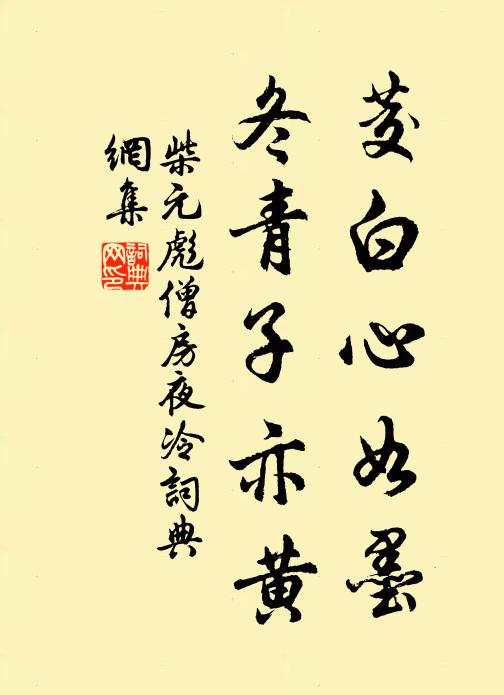 茭白心如墨
冬青子亦黄
柴元彪僧房夜冷詞典
網集
詞典
网印